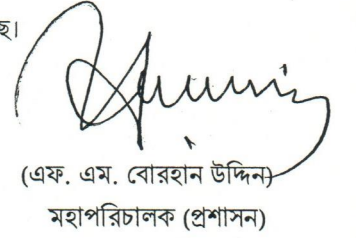 ছে।
(এফ. এম. বোরহান উদ্দিন)
মহাপরিচালক (প্রশাসন)